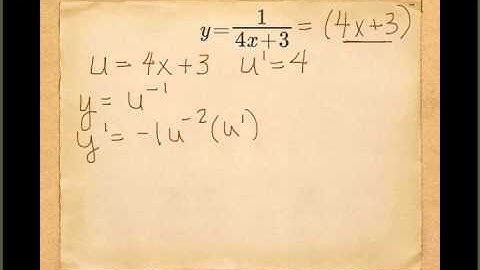 y = 1/(4x+3) = (4x+3)⁻
u = 4x+3 u' = 4
y = u⁻¹
y' = -1u⁻²(u')